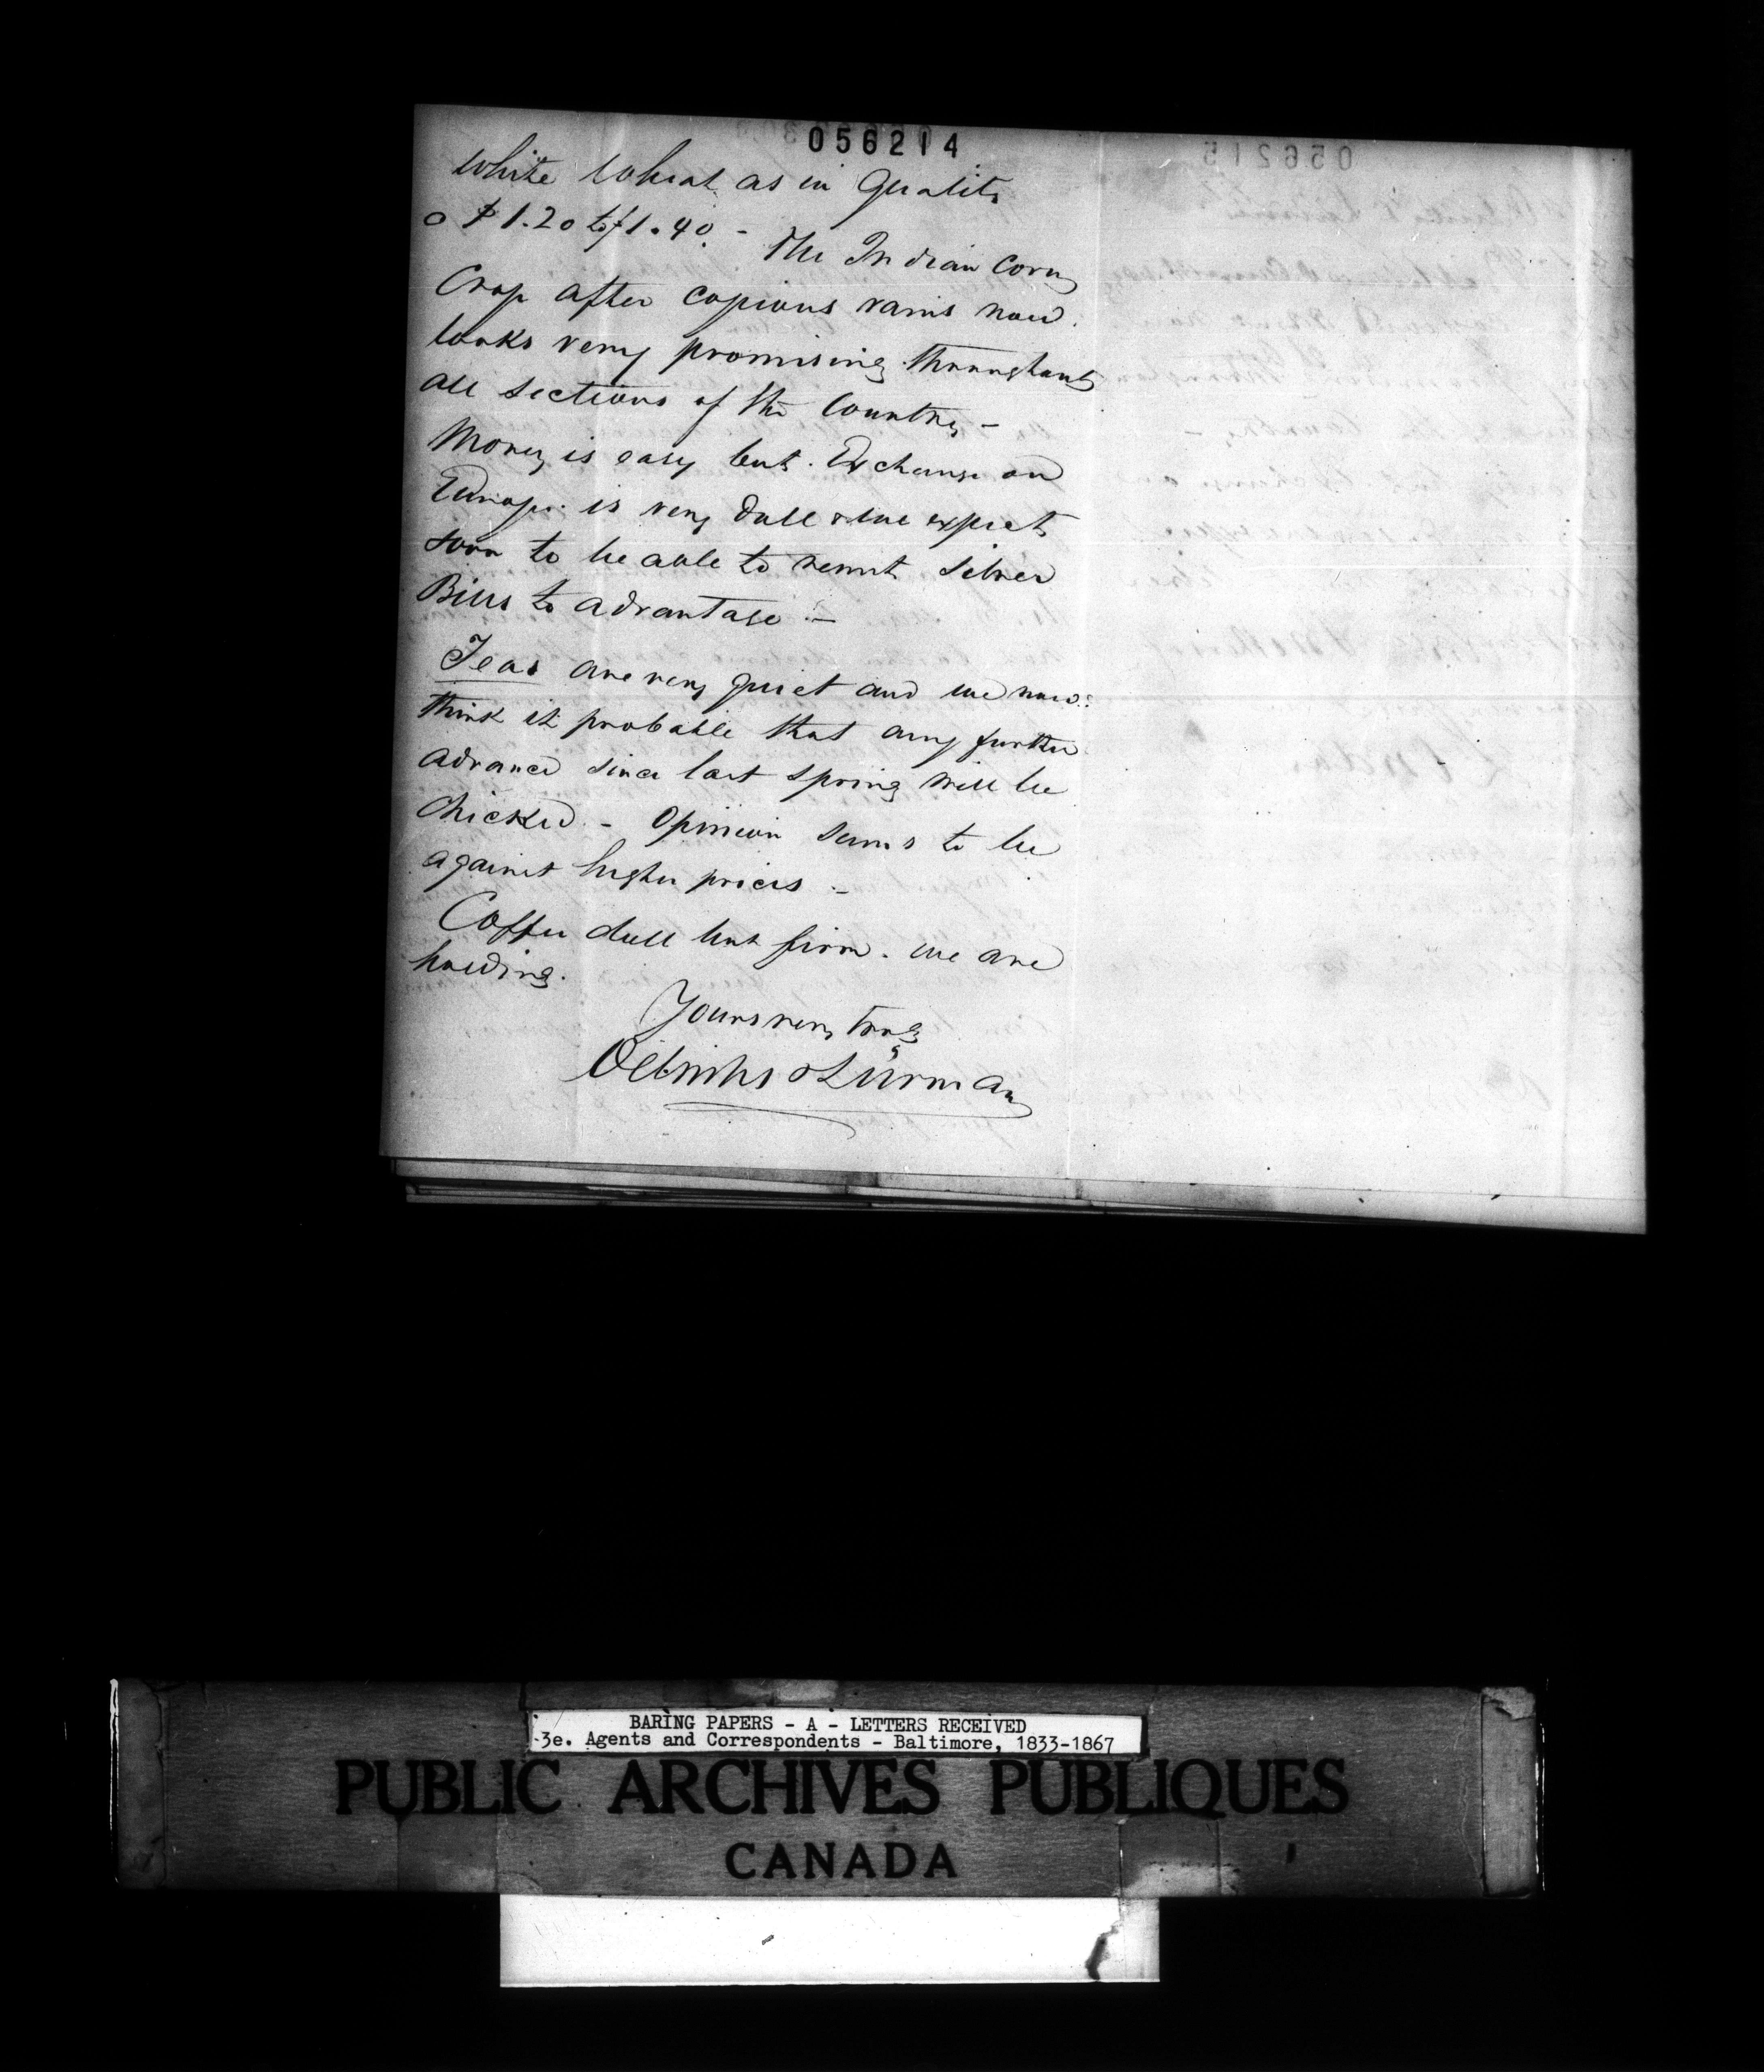 056214
White Wheat as in Quality
a $1.20 to $1.40. - The Indian Corn
Crop after copious rains now
looks very promising throughout
all sections of the Country -
Money is easy but Exchange on
Europe is very dull & we expect
soon to be able to remit Silver
Bills to advantage -
Teas are very quiet and we now
think it probable that any further
advance since last spring will be
checked - Opinion seems to be
against higher prices -
Coffee dull but firm. we are
holding.
Yours very truly
Oelrichs & Lürman
056215
BARING PAPERS - A - LETTERS RECEIVED
3e. Agents and Correspondents - Baltimore, 1833-1867
PUBLIC ARCHIVES PUBLIQUES
CANADA